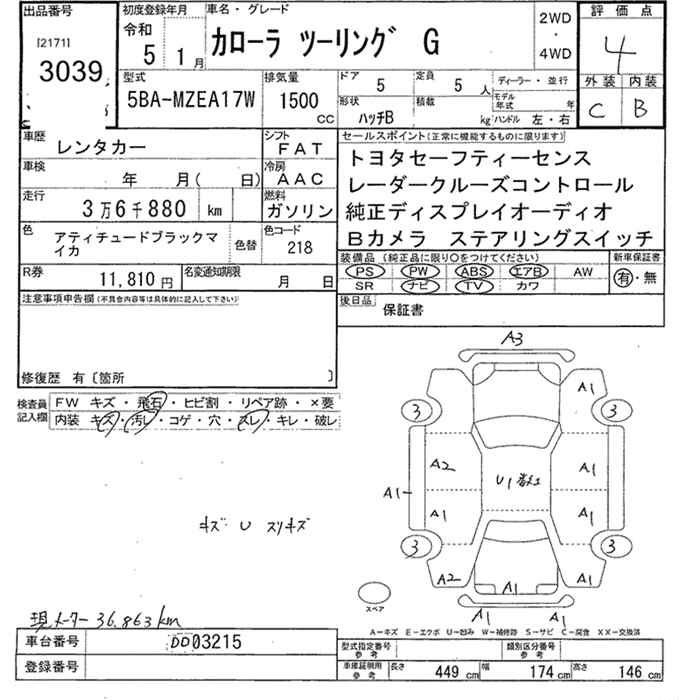 出品番号
[2171]
3039
初度登録年月
令和
5年 1月
車名・グレード
カローラ ツーリング G
2WD
・
4WD
評価点
4
外装 内装
C B
型式
5BA-MZEA17W
排気量
1500
CC
ドア 5
定員 5 人
形状 ハッチB
積載 kg
ディーラー・並行
モデル年式 年
ハンドル 左・右
車歴 レンタカー
シフト FAT
車検 年 月( 日)
冷房 AAC
走行 3万6千880 km
燃料 ガソリン
色 アティチュードブラックマイカ
色替
色コード 218
R券 11,810円
名変通知期限 月 日
セールスポイント(正常に機能するものに限ります)
トヨタセーフティーセンス
レーダークルーズコントロール
純正ディスプレイオーディオ
Bカメラ ステアリングスイッチ
装備品(純正品に限り○をつけてください)
新車保証書
PS PW ABS エアB AW
SR ナビ TV カワ
有・無
後日品 保証書
注意事項申告欄(不具合内容等は具体的に記入して下さい)
修復歴 有〔箇所 〕
検査員記入欄
FW キズ・飛石・ヒビ割・リペア跡・×要
内装 キズ・汚レ・コゲ・穴・スレ・キレ・破レ
キズ U スリキズ
現メーター 36.863km
A3
A1
3 3
A2 A1
U1
A1
A1 A1
3 3
A2 A1 A1
A1 A1
スペア
A-キズ E-エクボ U-凹み W-補修跡 S-サビ C-腐食 XX-交換済
車台番号 DD03215
登録番号
型式指定番号参考
類別区分番号参考
車庫証明用参考
長さ 449 cm
幅 174 cm
高さ 146 cm